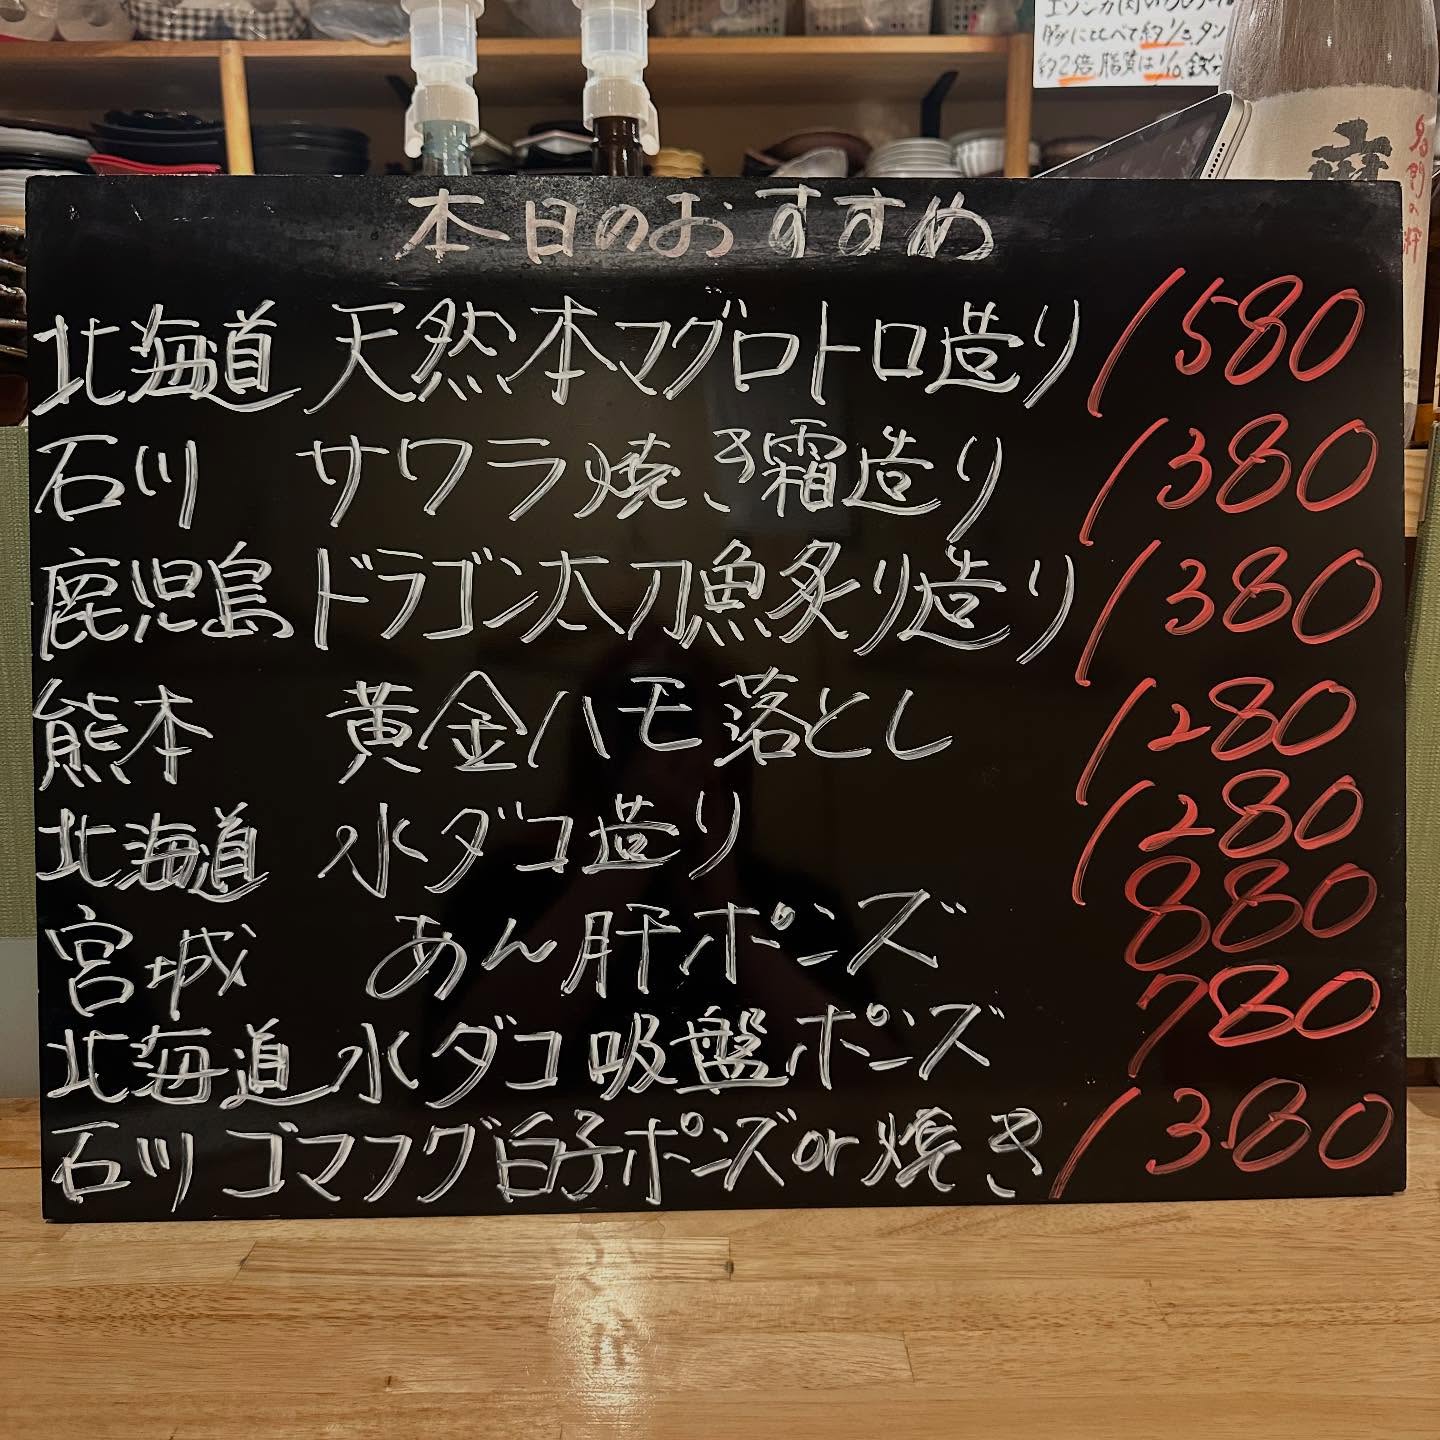 本日のおすすめ
北海道 天然本マグロトロ造り 1580
石川 サワラ焼き霜造り 1380
鹿児島 ドラゴン太刀魚炙り造り 1380
熊本 黄金ハモ落とし 1280
北海道 水ダコ造り 1280
宮城 あん肝ポンズ 880
北海道 水ダコ吸盤ポンズ 780
石川 ゴマフグ白子ポンズor焼き 1380
豚にくらべて約1/3、タン
約2倍 脂質は1/10、鉄分